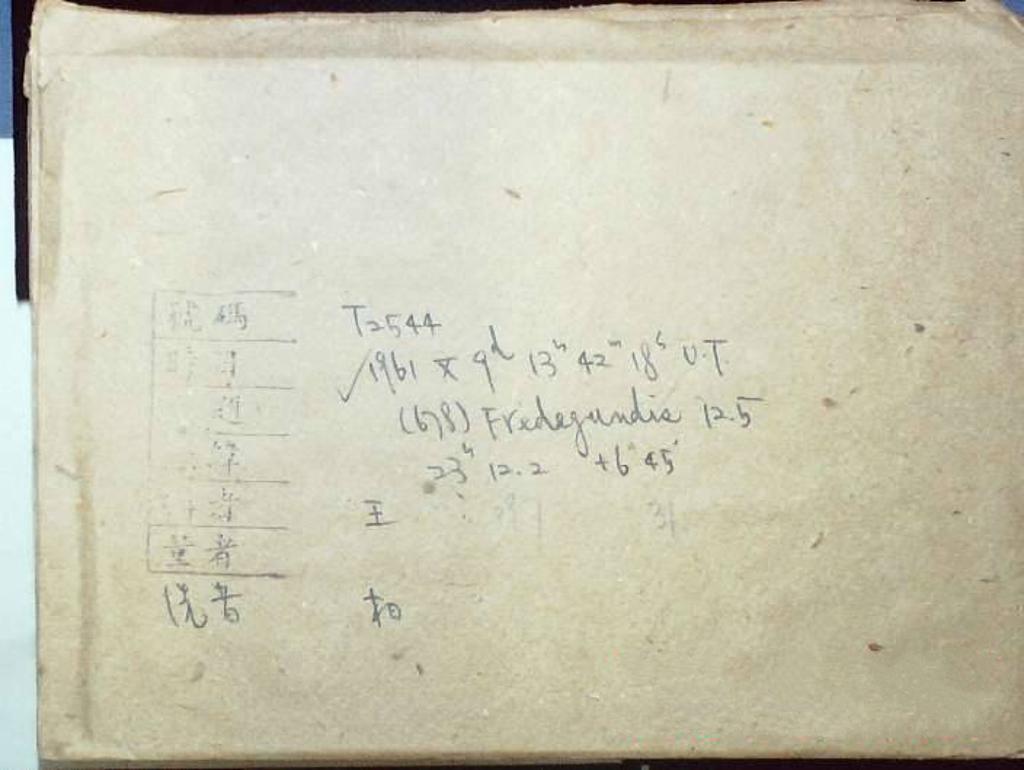 號碼 T2544
時日 ✓1961 X 9ᵈ 13ʰ 42ᵐ 18ˢ U.T.
(678) Fredegundis 12.5
23ʰ 12.2 +6° 45'
者 王
量者
洗者 柏